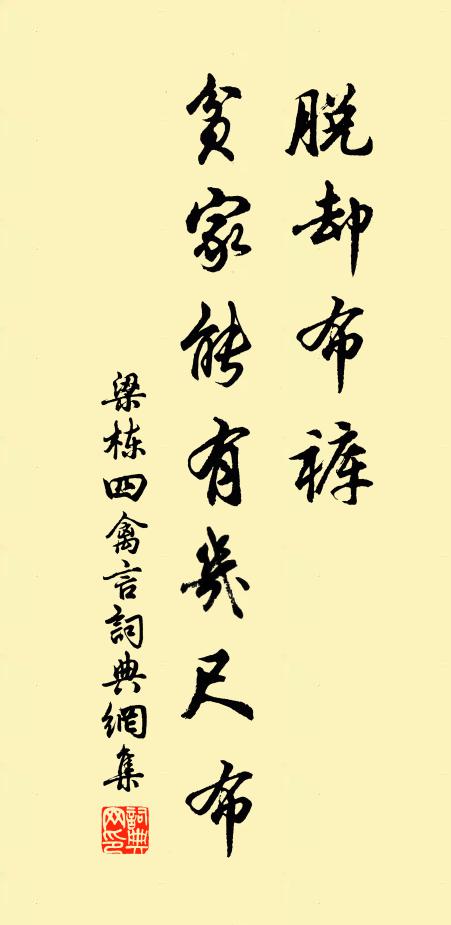 脱却布裤
贫家能有几尺布
梁栋四禽言詞典網集
詞典网印